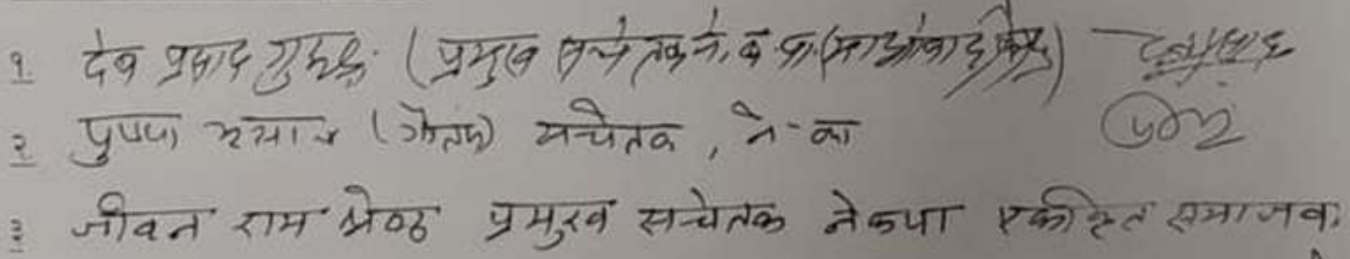 १. देव प्रसाद गुरुङ (प्रमुख सचेतक ने.क.पा.(माओवादी केन्द्र)
२ पुष्पा भुसाल (गौतम) सचेतक, ने-का
३ जीवन राम श्रेष्ठ प्रमुख सचेतक नेकपा एकीकृत समाजव